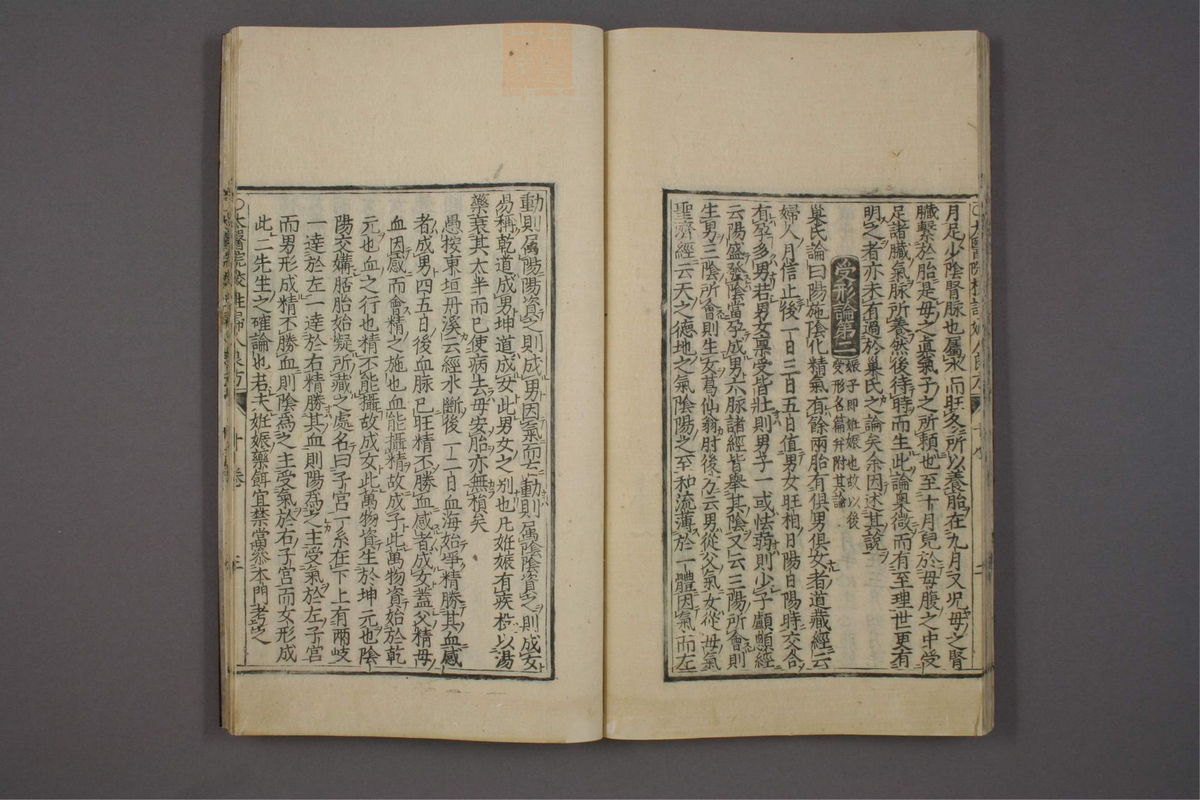 月足少陰腎脉也屬水而旺冬所以養胎在九月又況母之腎
臟繫於胎是母之真氣子之所賴也至十月兒於母腹之中受
足諸臟氣脉所養然後待時而生此論奧微而有至理世更有
明之者亦未有過於巢氏之論矣余因述其說
受形論第二
娠子即姙娠也故以後
受形名篇并附其論
巢氏論曰陽施陰化精氣有餘兩胎有俱男俱女者道藏經云
婦人月信止後一日三日五日值男女旺相日陽日陽時交合
有孕多男若男女稟受皆壯則男子一或怯弱則少子顱顖經
云陽盛發陰當孕成男六脉諸經皆舉其陰又云三陽所會則
生男三陰所會則生女葛仙翁肘後方云男從父氣女從母氣
聖濟經云天之德地之氣陰陽之至和流薄於一體因氣而左
動則屬陽陽資之則成男因氣而右動則屬陰陰資之則成女
易稱乾道成男坤道成女此男女之別也凡姙娠有疾投以湯
藥衰其太半而已使病去母安胎亦無損矣
愚按東垣丹溪云經水斷後一二日血海始淨精勝其血感
者成男四五日後血脉已旺精不勝血感者成女蓋父精母
血因感而會精之施也血能攝精故成子此萬物資始於乾
元也血之行也精不能攝故成女此萬物資生於坤元也陰
陽交媾胚胎始凝所藏之處名曰子宮一系在下上有兩岐
一達於左一達於右精勝其血則陽爲之主受氣於左子宮
而男形成精不勝血則陰爲之主受氣於右子宮而女形成
此二先生之確論也若夫姙娠藥餌宜禁當叅本門考之
○太醫院校註婦人良方
十卷